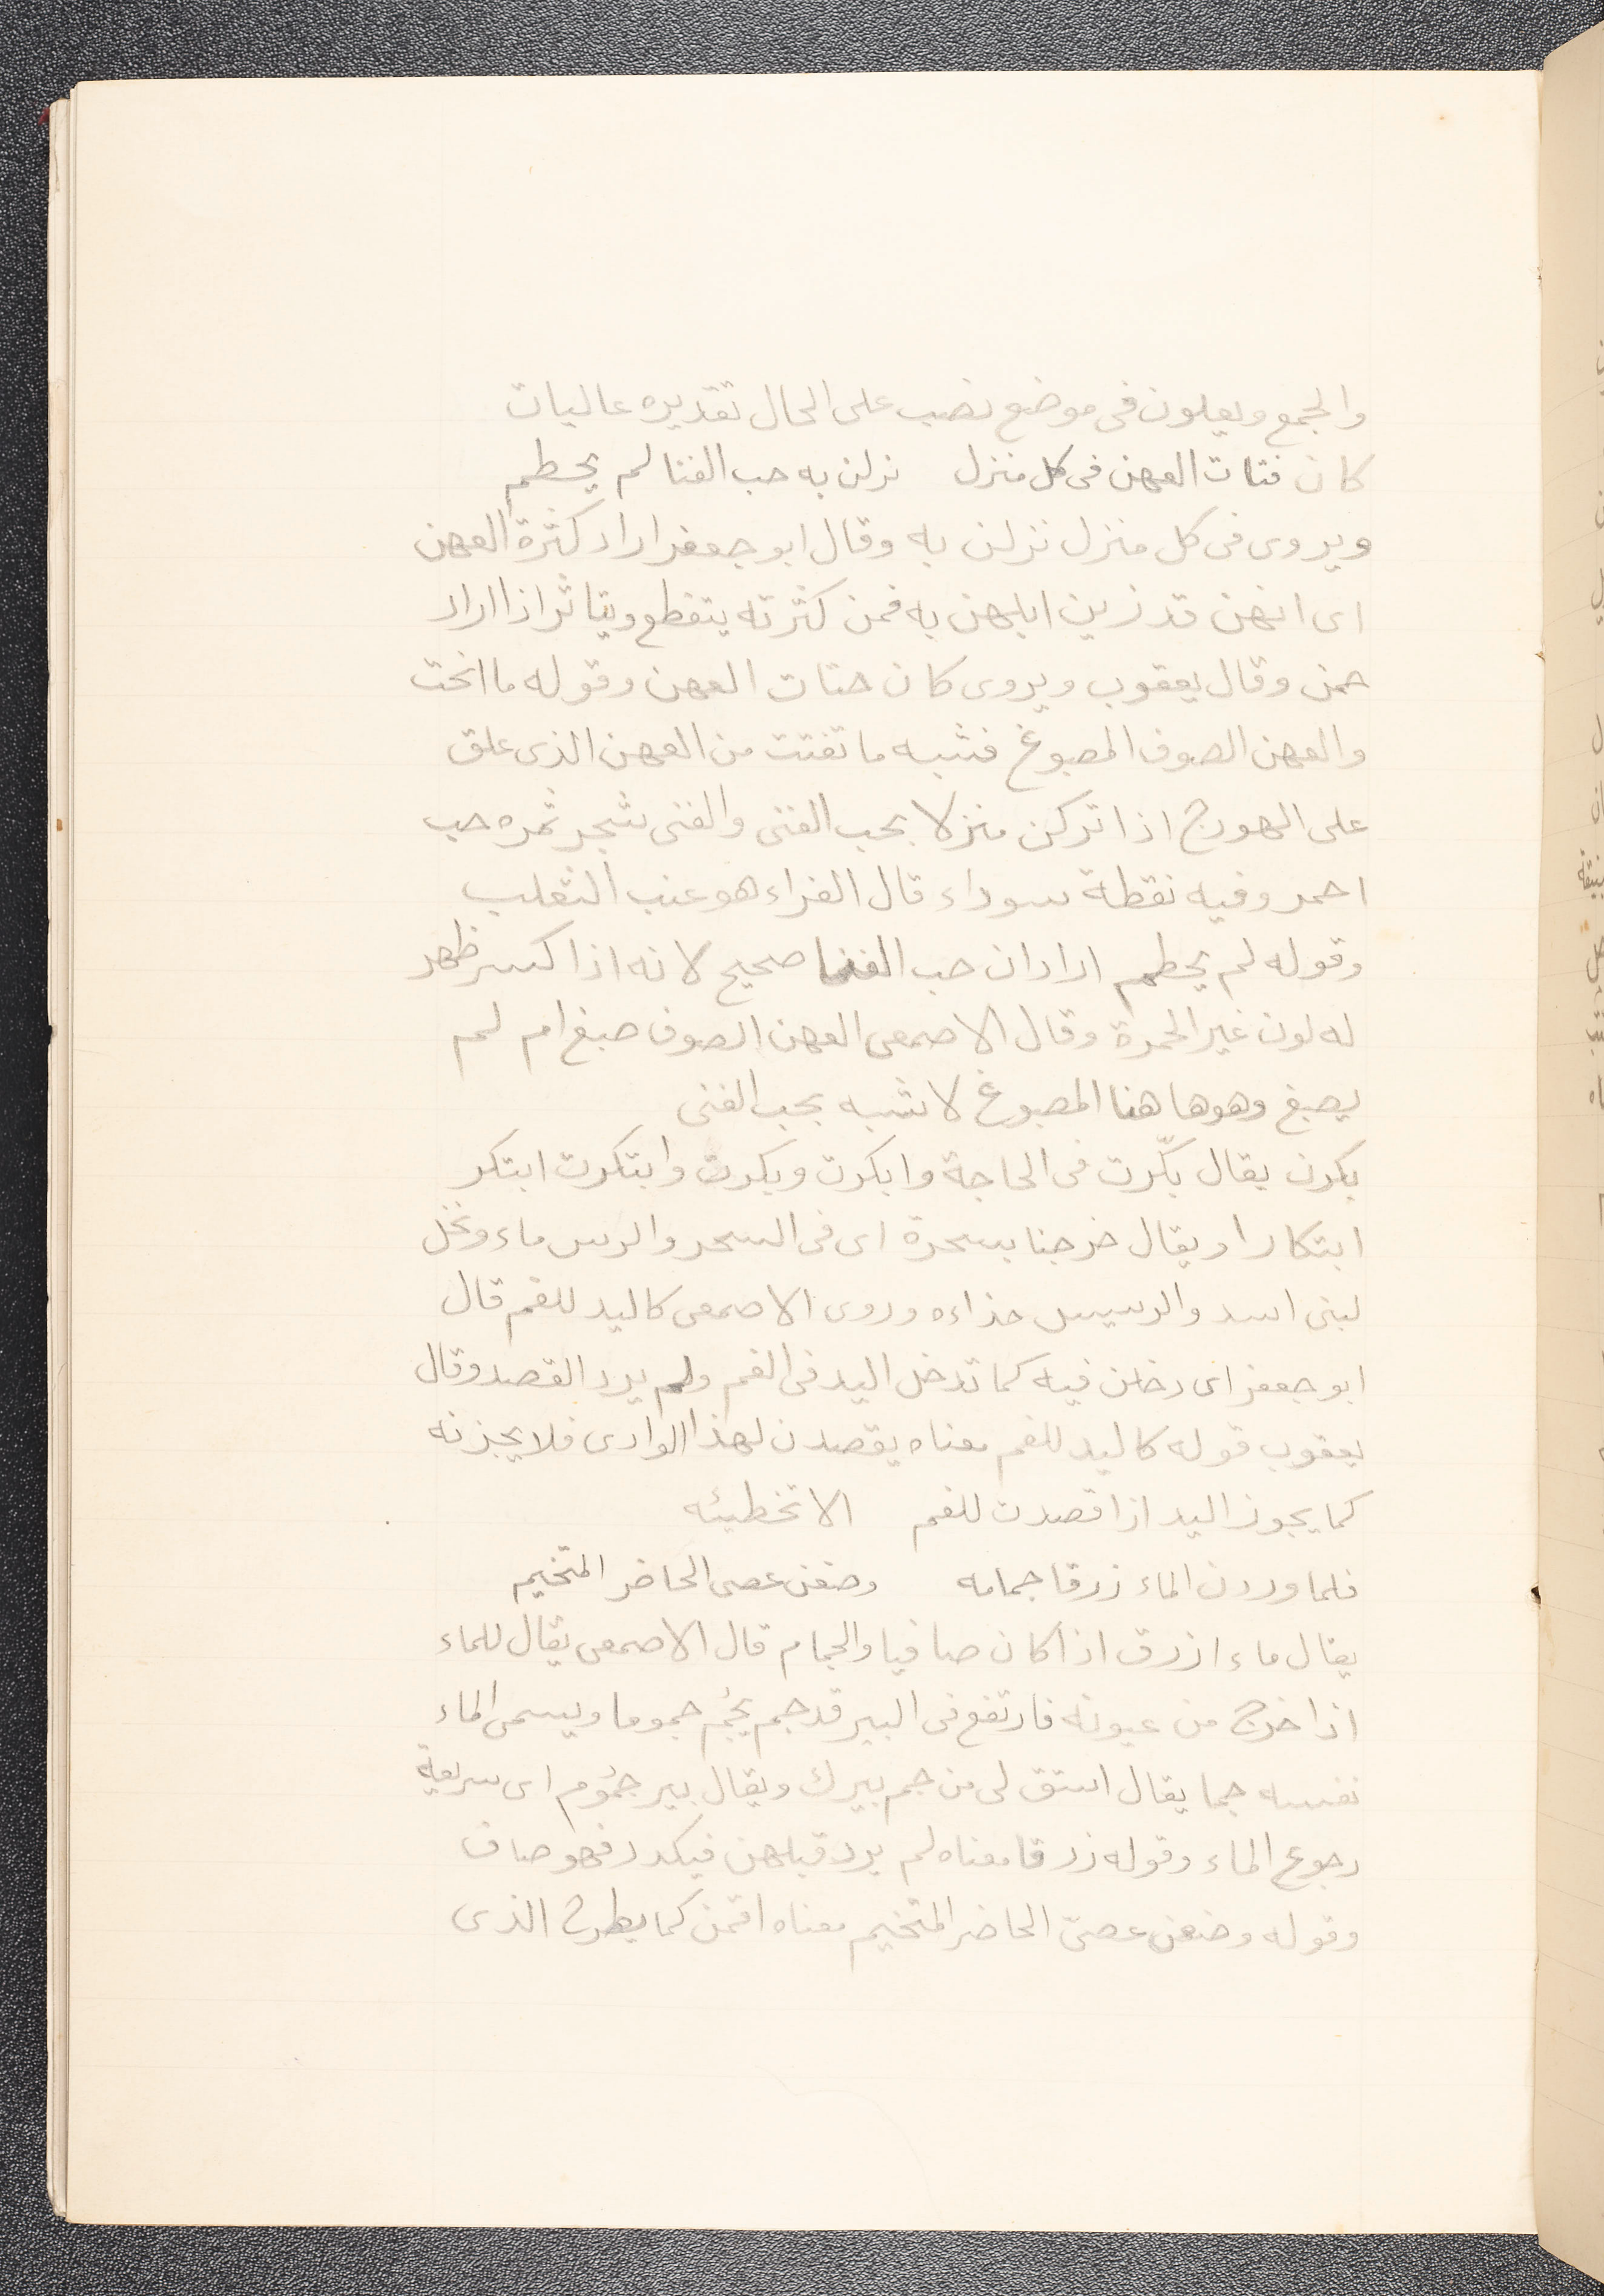 والجمع ويعلون فى موضع نصب على الحال تقديره عاليات
كان فتات العهن فى كل منزل نزلن به حب الفنا لم يحطم
ويروى فى كل منزل نزلن به وقال ابو جعفر اراد كثرة العهن
اى انهن قد زين ابلهن به فمن كثرته يتقطع ويتاثر اذا اراد
حمن وقال يعقوب ويروى كان حتات العهن وقوله ما انحت
والعهن الصوف المصبوغ فشبه ما تفتت من العهن الذى علق
على الهودج اذا تركن منزلا بحب الفنى والفنى شجر ثمره حب
احمر وفيه نقطة سوداء قال الفراء هو عنب الثعلب
وقوله لم يحطم اراد ان حب الفنا صحيح لانه اذا كسر ظهر
له لون غير الحمرة وقال الاصمعى العهن الصوف صبغ ام لم
يصبغ وهو ها هنا المصبوغ لا شبه بحب الفنى
بكرن يقال بكّرت فى الحاجة وابكرت وبكرت وابتكرت ابتكر
ابتكارا ويقال خرجنا بسحرة اى فى السحر والرس ماء ونخل
لبنى اسد والرسيس حذاءه وروى الاصمعى كاليد للفم قال
ابو جعفر اى دخلن فيه كما تدخل اليد فى الفم ولم يرد القصد وقال
يعقوب قوله كاليد للفم معناه يقصدن لهذا الوادى فلا يجزنه
كما يجوز اليد اذا قصدت للفم الا تخطيئه
فلما وردن الماء زرقا جمامه وضعن عصى الحاضر المتخيم
يقال ماء ازرق اذا كان صافيا والجمام قال الاصمعى يقال للماء
اذا خرج من عيونه فارتفع فى البير قد جم يجُم جموما ويسمى الماء
نفسه جما يقال استق لى من جم بيرك ويقال بير جمُوم اى سريعة
رجوع الماء وقوله زرقا معناه لم يرد قبلهن فيكدر فهو صاف
وقوله وضعن عصىّ الحاضر المتخيم معناه اقمن كما يطرح الذى